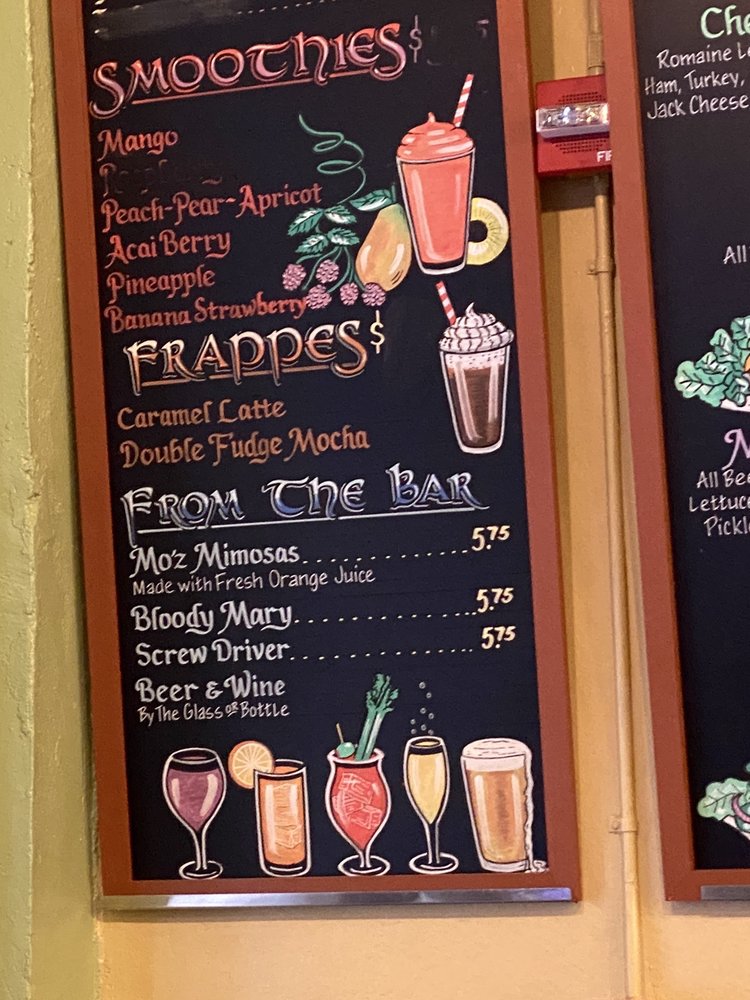 SMOOTHIES $
Mango
Peach-Pear-Apricot
Acai Berry
Pineapple
Banana Strawberry
FRAPPES $
Caramel Latte
Double Fudge Mocha
FROM THE BAR
Mo'z Mimosas............5.75
Made with Fresh Orange Juice
Bloody Mary..............5.75
Screw Driver..............5.75
Beer & Wine
By The Glass or Bottle
Che
Romaine Le
Ham, Turkey,
Jack Cheese
FI
All
All Bee
Lettuce
Pickl